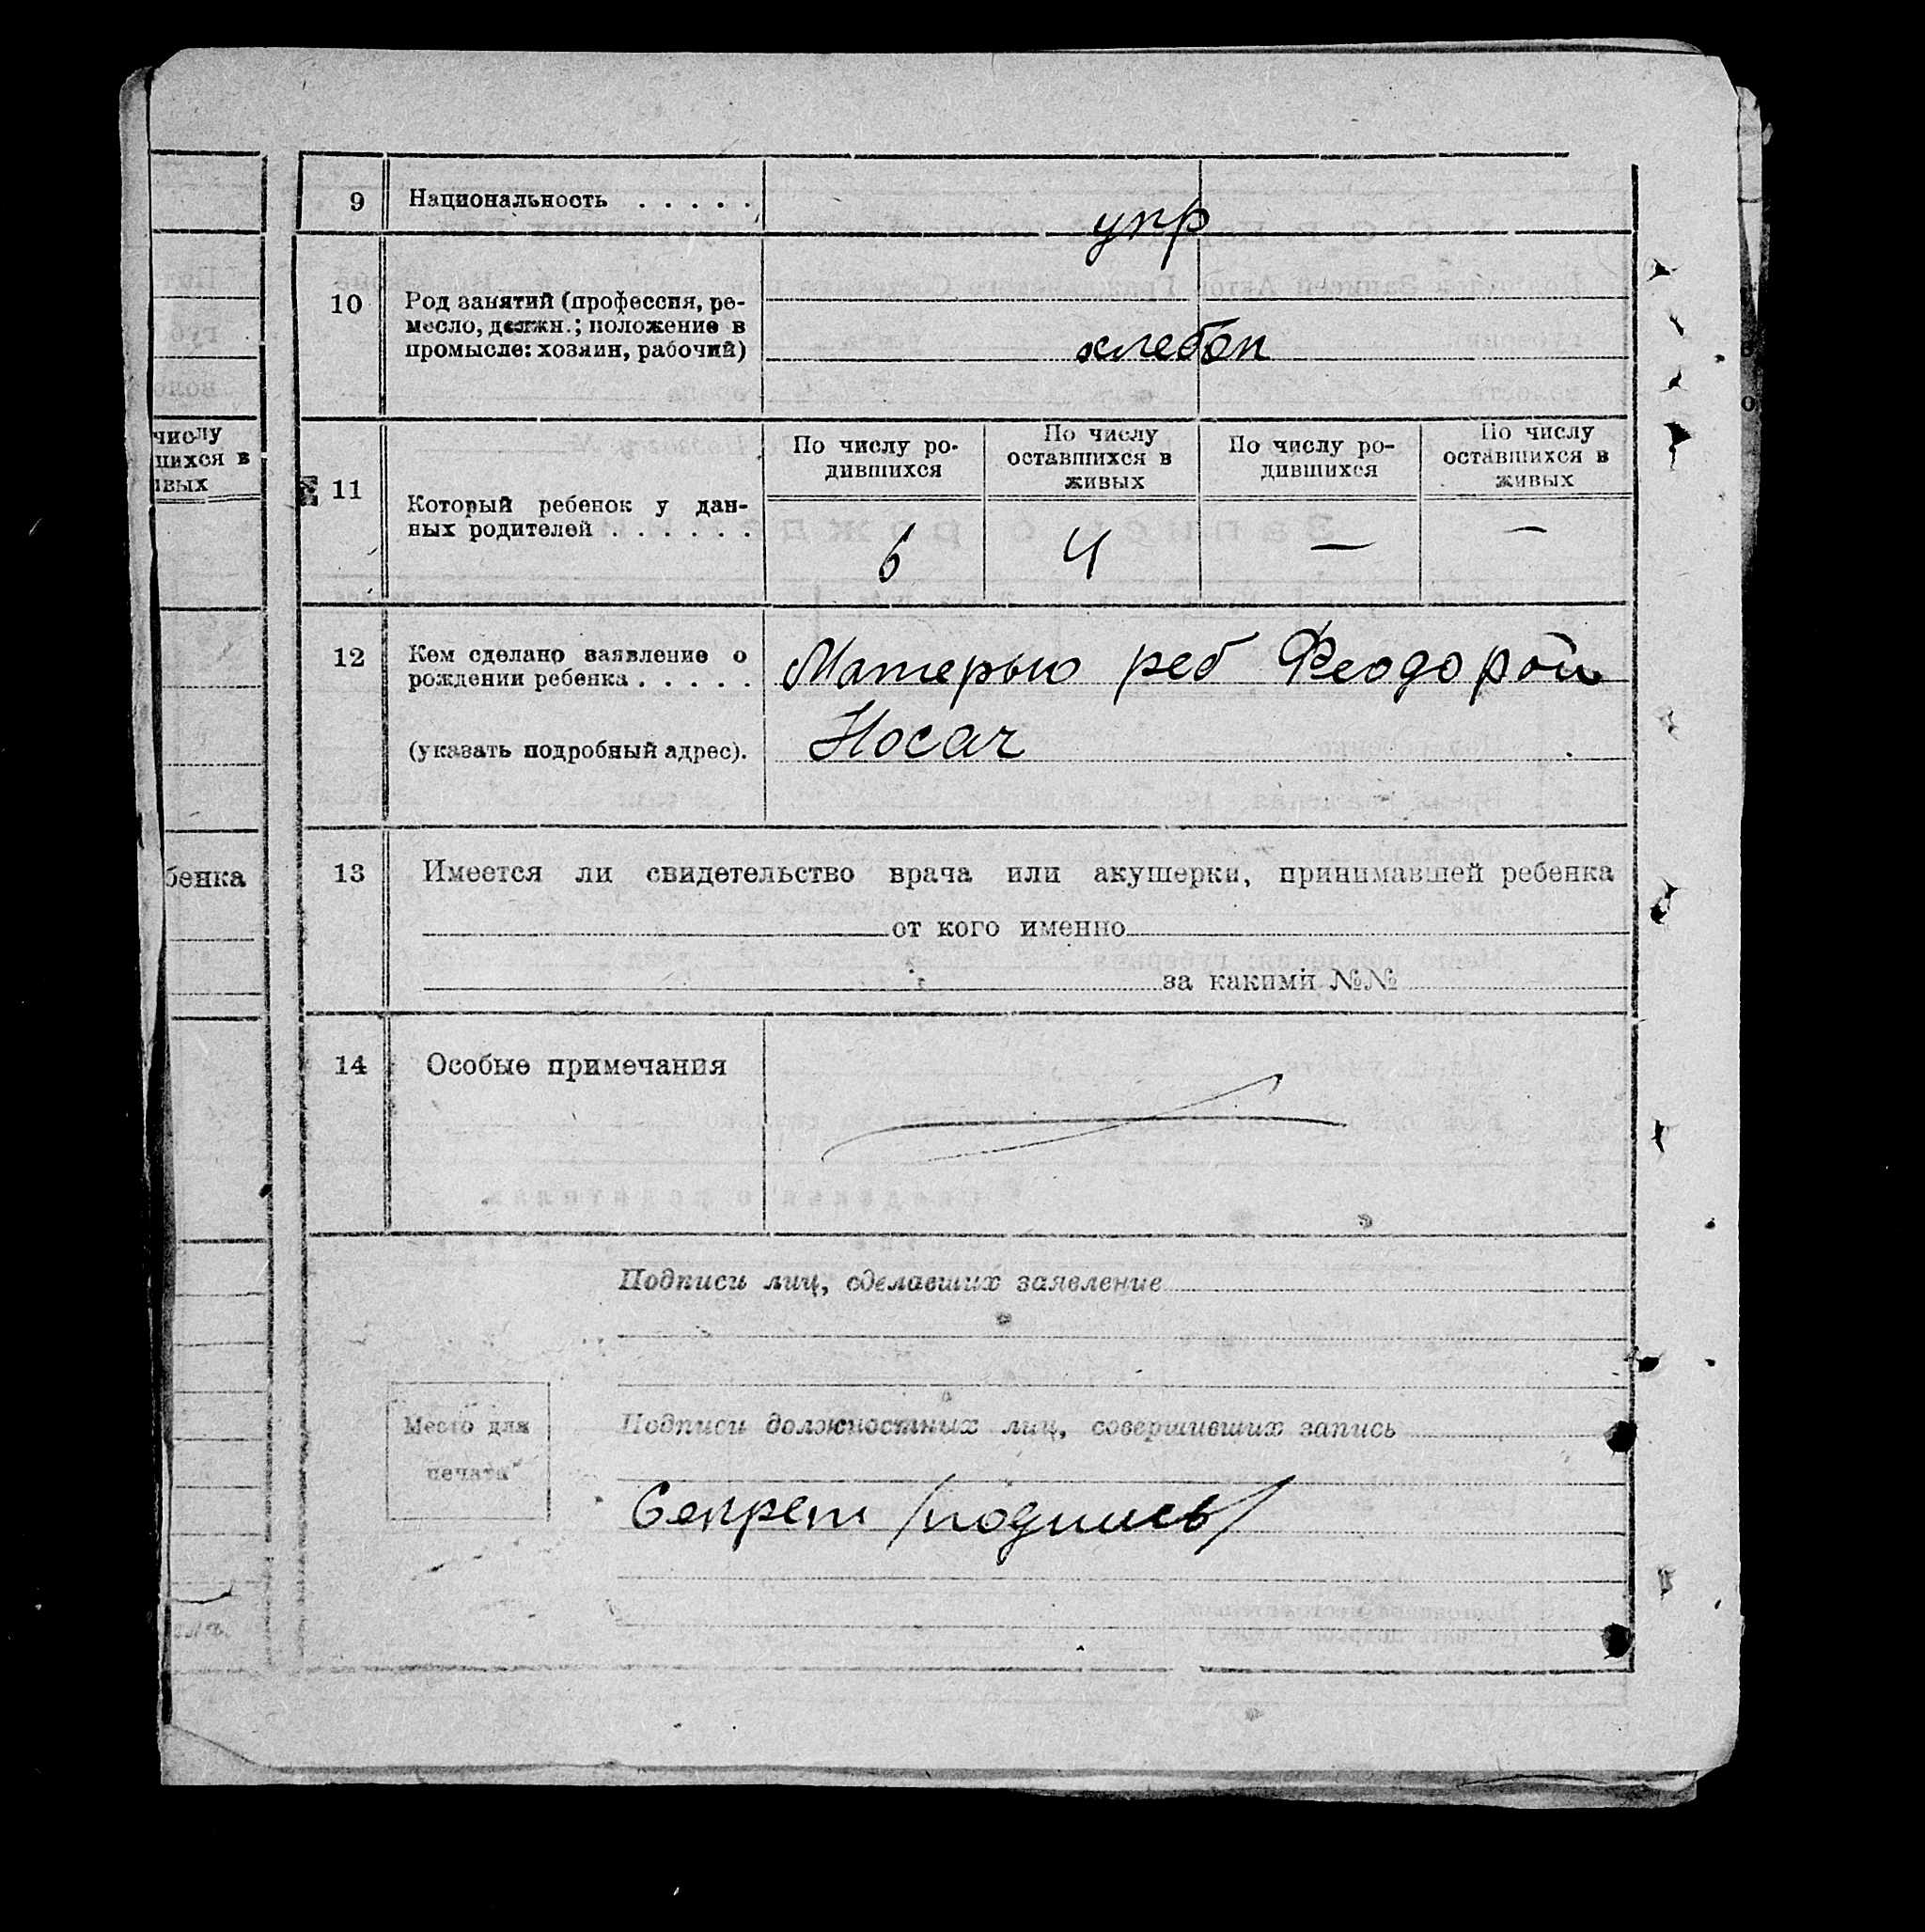 числу
шихся в
ивых
бенка
9 Национальность . . . . .
укр
10 Род занятий (профессия, ре-
месло, должн.; положение в
промысле: хозяин, рабочий)
хлебоп
11 Который ребенок у дан-
ных родителей . . . . . .
По числу ро-
дившихся
По числу
оставшихся в
живых
По числу ро-
дившихся
По числу
оставшихся в
живых
6 4 — —
12 Кем сделано заявление о
рождении ребенка . . . . .
(указать подробный адрес).
Матерью реб Феодорой
Носач
13 Имеется ли свидетельство врача или акушерки, принимавшей ребенка
от кого именно
за какими №№
14 Особые примечания
Подписи лиц, сделавших заявление
Место для
печати
Подписи должностных лиц, совершивших запись
Секрет /подпись/